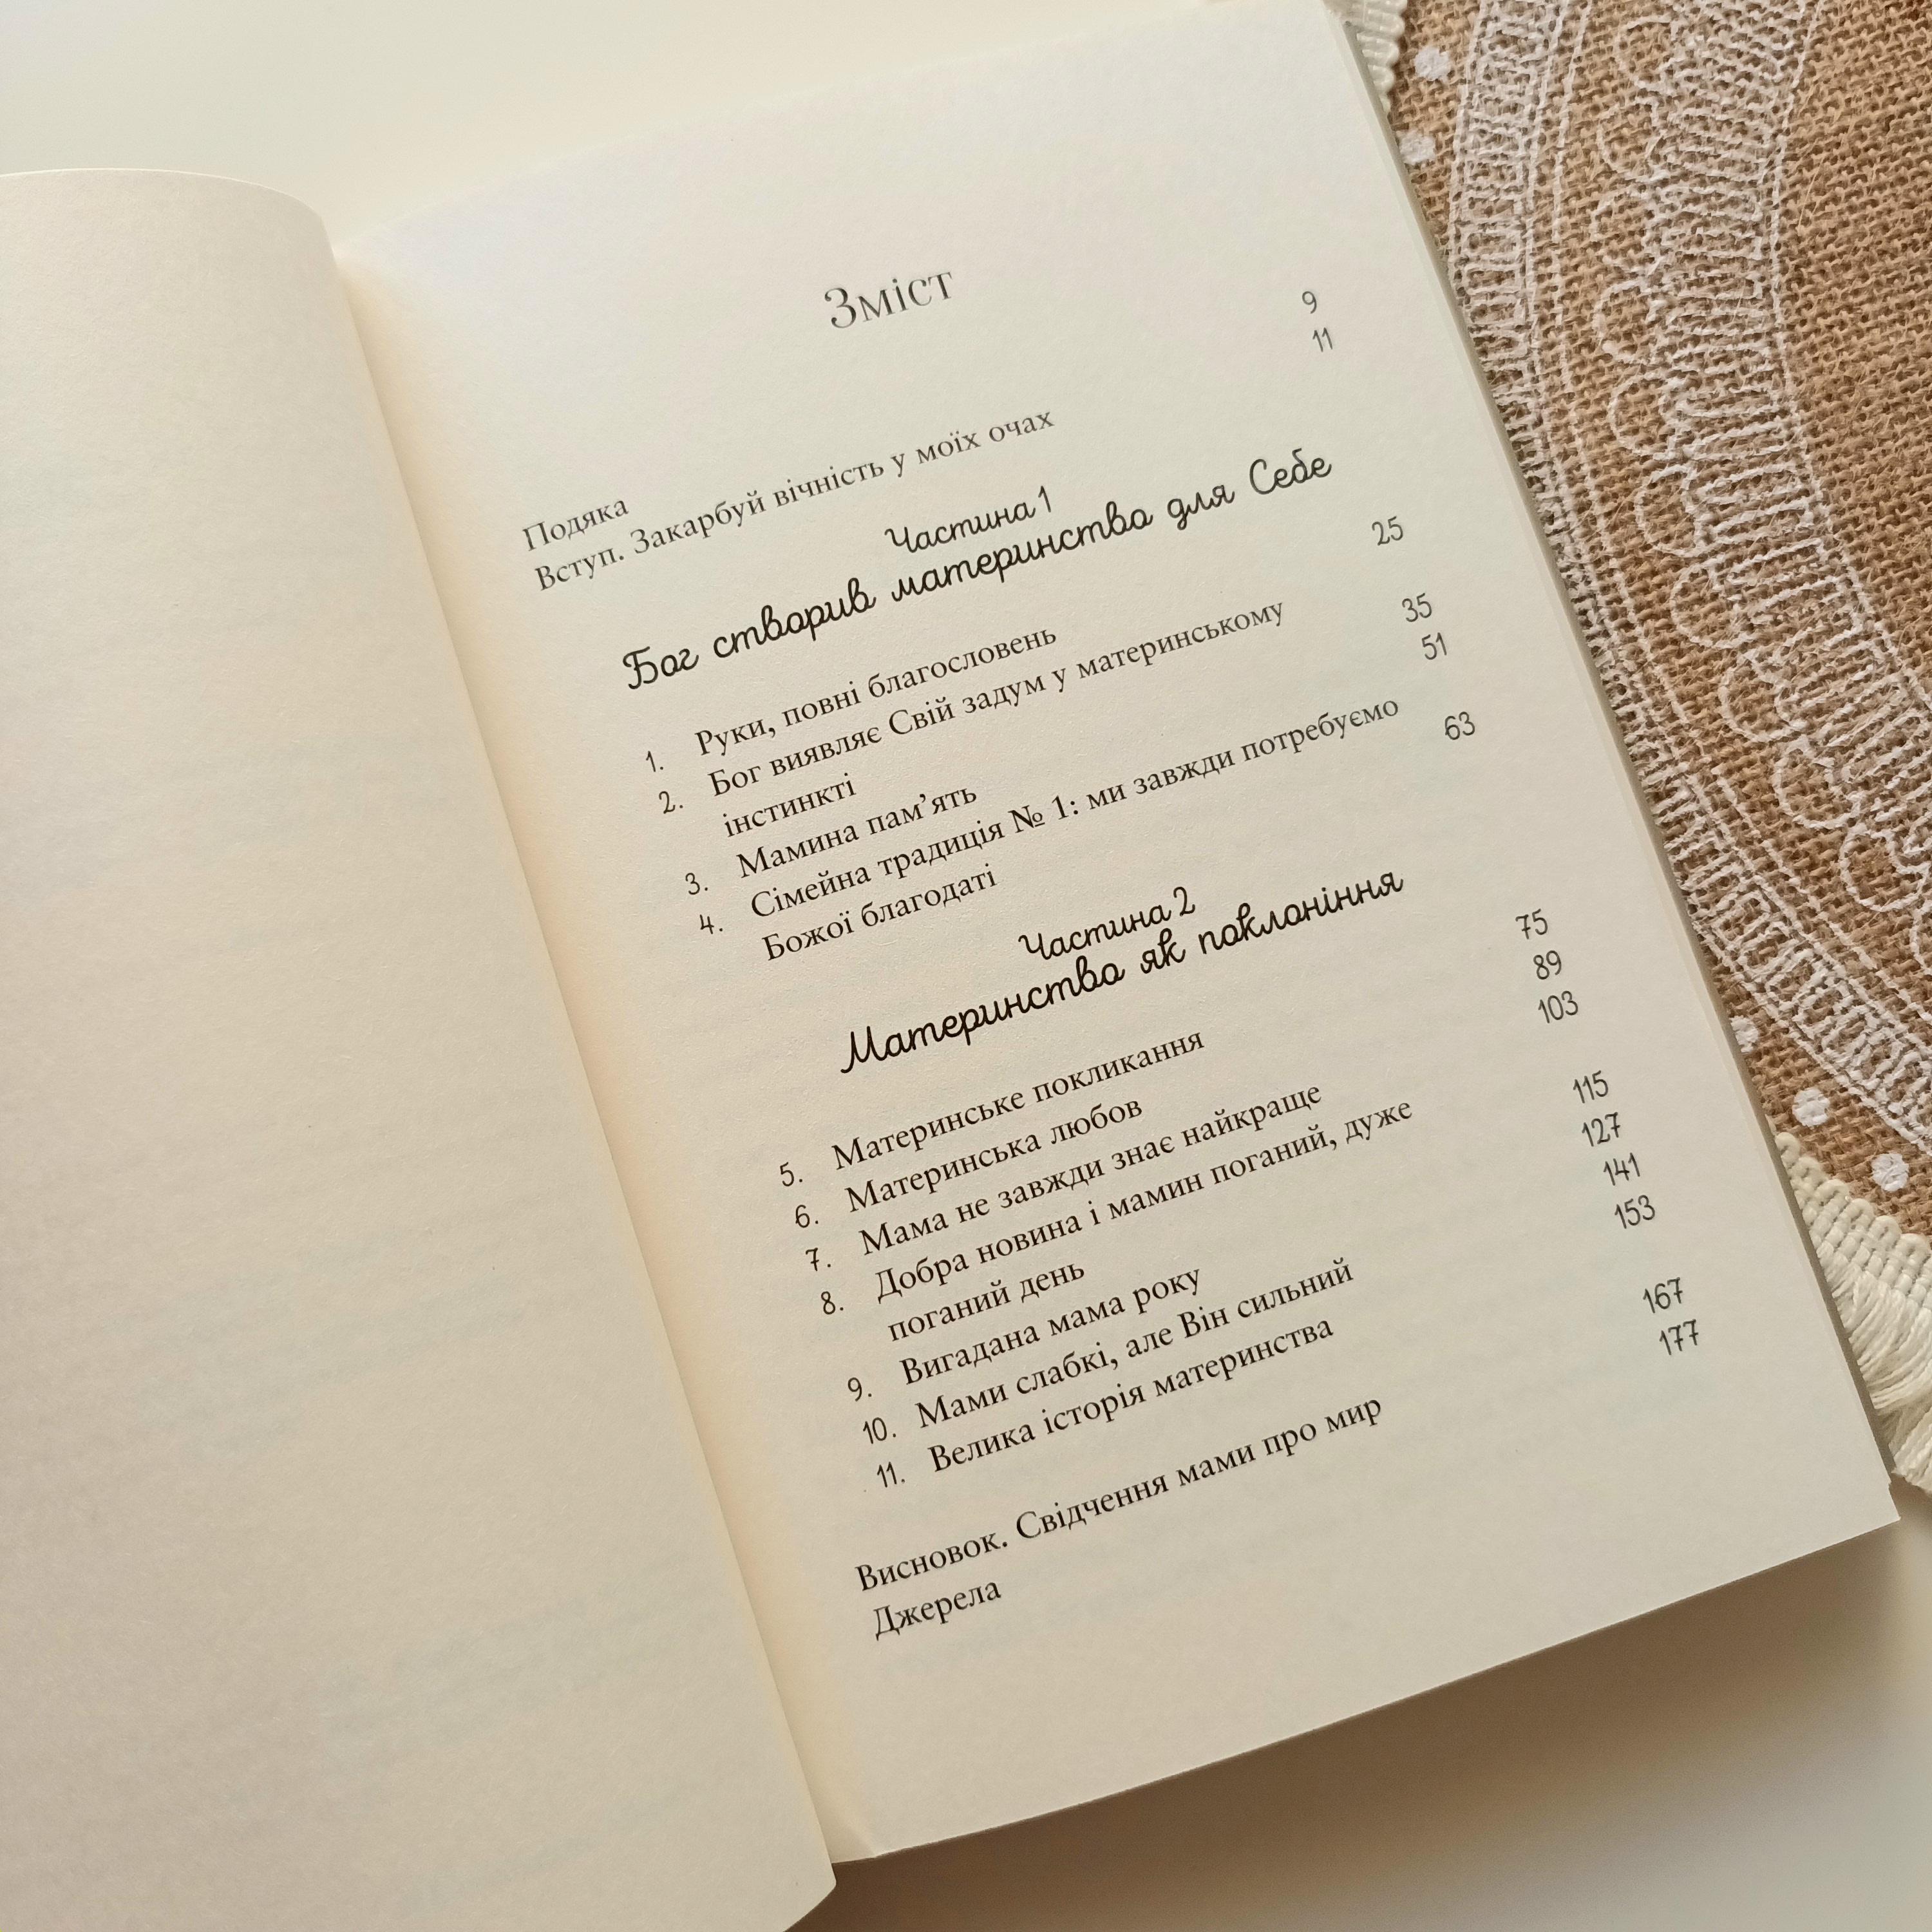 Зміст
Подяка 9
Вступ. Закарбуй вічність у моїх очах 11
Частина 1
Бог створив материнство для Себе
1. Руки, повні благословень 25
2. Бог виявляє Свій задум у материнському
інстинкті 35
3. Мамина пам’ять 51
4. Сімейна традиція № 1: ми завжди потребуємо
Божої благодаті 63
Частина 2
Материнство як поклоніння
5. Материнське покликання 75
6. Материнська любов 89
7. Мама не завжди знає найкраще 103
8. Добра новина і мамин поганий, дуже
поганий день 115
9. Вигадана мама року 127
10. Мами слабкі, але Він сильний 141
11. Велика історія материнства 153
Висновок. Свідчення мами про мир 167
Джерела 177